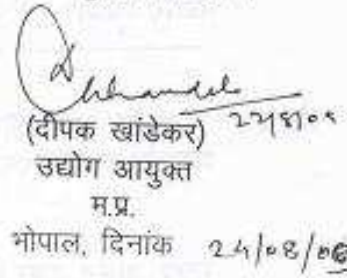 (दीपक खांडेकर)
उद्योग आयुक्त
म.प्र.
भोपाल, दिनांक 24/08/06